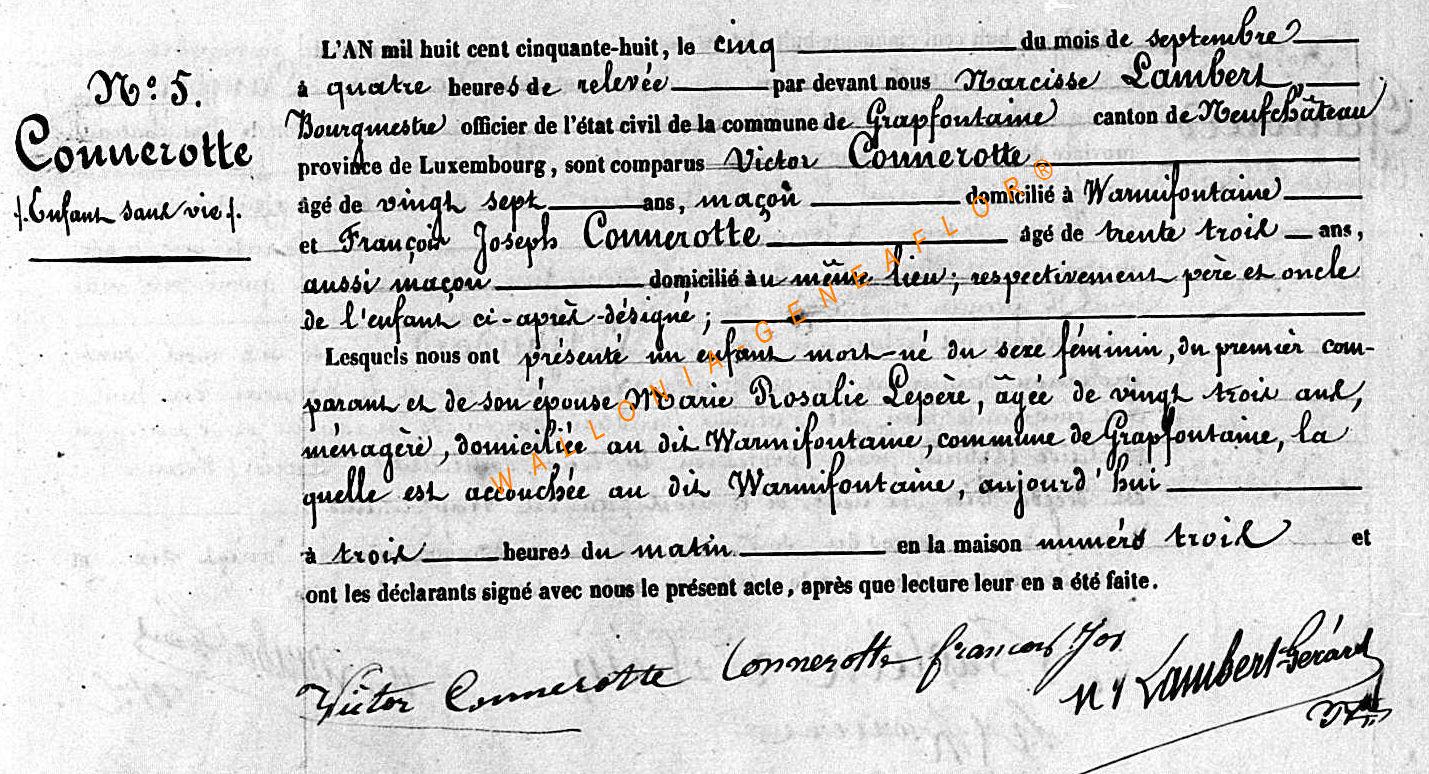 N.º 5.
Connerotte
/. Enfant sans vie /.
L'AN mil huit cent cinquante-huit, le cinq du mois de septembre
à quatre heures de relevée par devant nous Narcisse Lambert,
Bourgmestre officier de l'état civil de la commune de Grapfontaine canton de Neufchâteau
province de Luxembourg, sont comparus Victor Connerotte
âgé de vingt sept ans, maçon domicilié à Warmifontaine
et François Joseph Connerotte âgé de trente trois ans,
aussi maçon domicilié au même lieu; respectivement père et oncle
de l'enfant ci-après-désigné;
Lesquels nous ont présenté un enfant mort-né du sexe féminin, du premier com-
parant et de son épouse Marie Rosalie Lepère, âgée de vingt trois ans,
ménagère, domiciliée au dit Warmifontaine, commune de Grapfontaine, la
quelle est accouchée au dit Warmifontaine, aujourd'hui
à trois heures du matin en la maison numéro trois et
ont les déclarants signé avec nous le présent acte, après que lecture leur en a été faite.
Victor Connerotte Connerotte francois Jos
Lambert-Gérard
WALLONIA-GENEAFLOR®